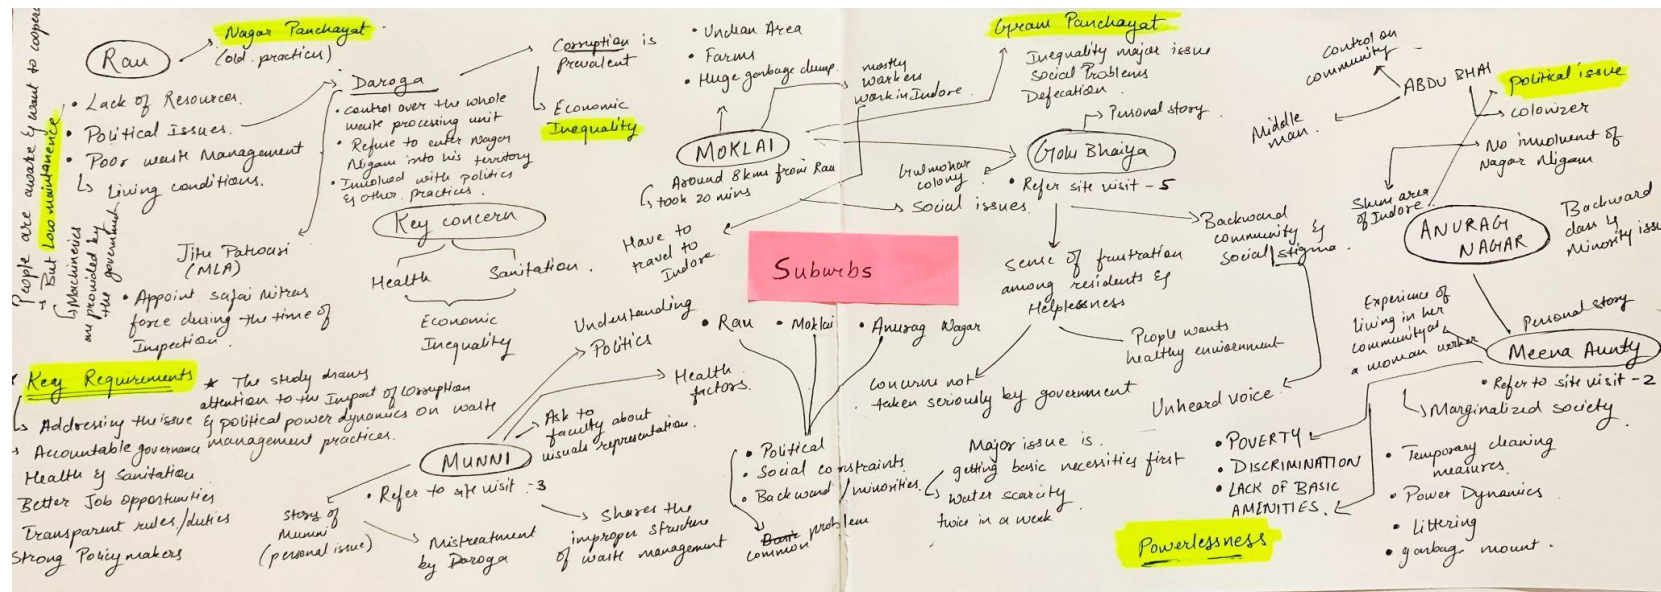 People are aware & want to cooper
→ But Low maintanence
Machineries
are provided by
the government
Rau
Nagar Panchayat.
(old practices)
• Lack of Resources.
• Political Issues.
• Poor waste Management
Living conditions.
Daroga
• control over the whole
waste processing unit
• Refuse to enter Nagar
Nigam into his territory
• Involved with politics
& other practices.
Corruption is
prevalent
Economic
Inequality
Jitu Patwari
(MLA)
• Appoint safai mitras
force during the time of
Inspection.
Key concern
Health
Sanitation.
Economic
Inequality
Key Requirements
Addressing the issue
Accountable governance
Health & Sanitation
Better Job opportunities
Transparent rules/duties
Strong Policymakers
★ The study draws
attention to the Impact of corruption
& political power dynamics on waste
management practices.
MUNNI
• Refer to site visit -3
Understanding
Politics
Health
factors.
Ask to
faculty about
visuals representation.
story of
Munni
(personal issue)
Mistreatment
by Daroga
Shares the
improper structure
of waste management
• Unclean Area
• Farms
• Huge garbage dump.
mostly
workers
work in Indore.
MOKLAI
Around 8kms from Rau
took 20 mins
Have to
travel to
Indore.
Social issues.
Suburbs
• Rau
• Moklai
• Anurag Nagar
• Political
• Social constraints.
• Backward/minorities.
common problem
Gram Panchayat
Inequality major issue
Social Problems
Defecation.
Personal story
Golu Bhaiya
Gulmohar
colony
• Refer site visit -5
sense of frustration
among residents &
Helplessness
Backward
community &
Social stigma.
People wants
healthy environment
concerns not
taken seriously by government
Unheard voice
Major issue is.
getting basic necessities first
Water scarcity
twice in a week.
control on
community
ABDU BHAI
Middle
man.
Political issue
colonizer
No involvent of
Nagar Nigam
Slum area
of Indore.
ANURAG
NAGAR
Backward
class &
Minority issu
Experience of
living in her
community as
a woman worker
Personal story
Meena Aunty
• Refer to site visit -2
Marginalized society
• Temporary cleaning
measures.
• Power Dynamics
• Littering
• garbage mount.
• POVERTY
• DISCRIMINATION
• LACK OF BASIC
AMENITIES.
Powerlessness